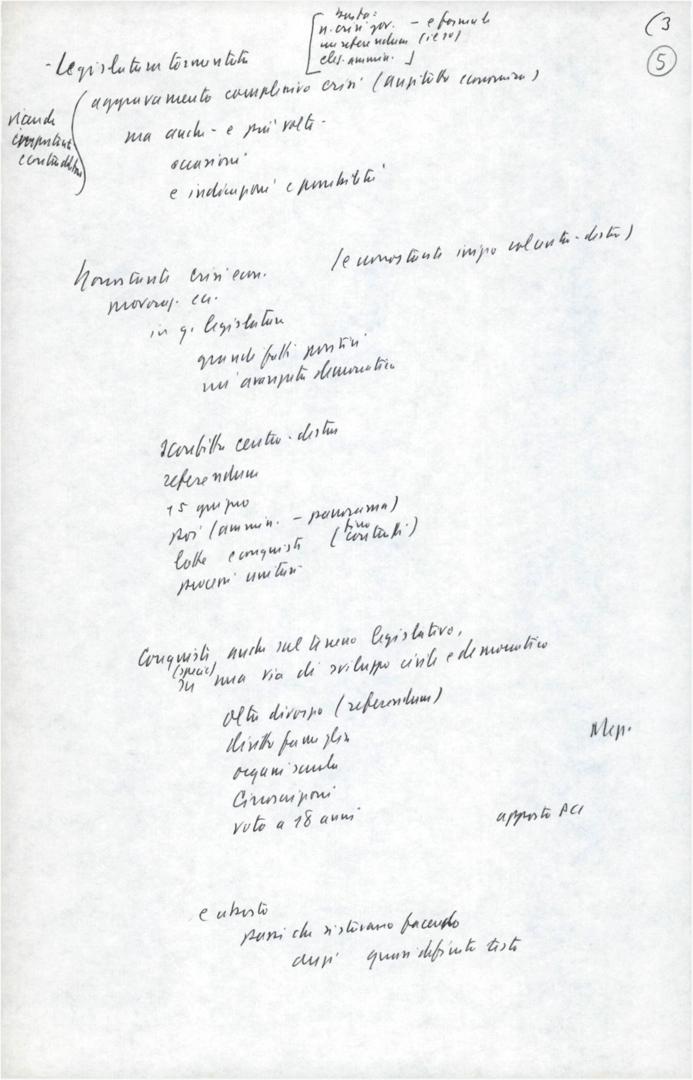 (3
(5)
n. crisi gov. - e formule
un referendum
elez. ammin. ]
- Legislatura tormentata
aggravamento complessivo crisi (anzitutto economica)
ma anche - e più volte -
occasioni
e indicazioni e possibilità
Nonostante crisi econ.
(e nonostante inizio col centro-destra)
provocaz. ecc.
in q. legislatura
grandi fatti positivi
un'avanzata democratica
Sconfitta centro-destra
referendum
15 giugno
poi (ammin. - panorama)
lotte e conquiste
processi unitari
Conquiste anche sul terreno legislativo,
(specie)
su una via di sviluppo civile e democratico
oltre divorzio (referendum)
diritto famiglia
organi scuola
Circoscrizioni
voto a 18 anni
apporto PCI
e aborto
passi che si stavano facendo
quasi definito testo